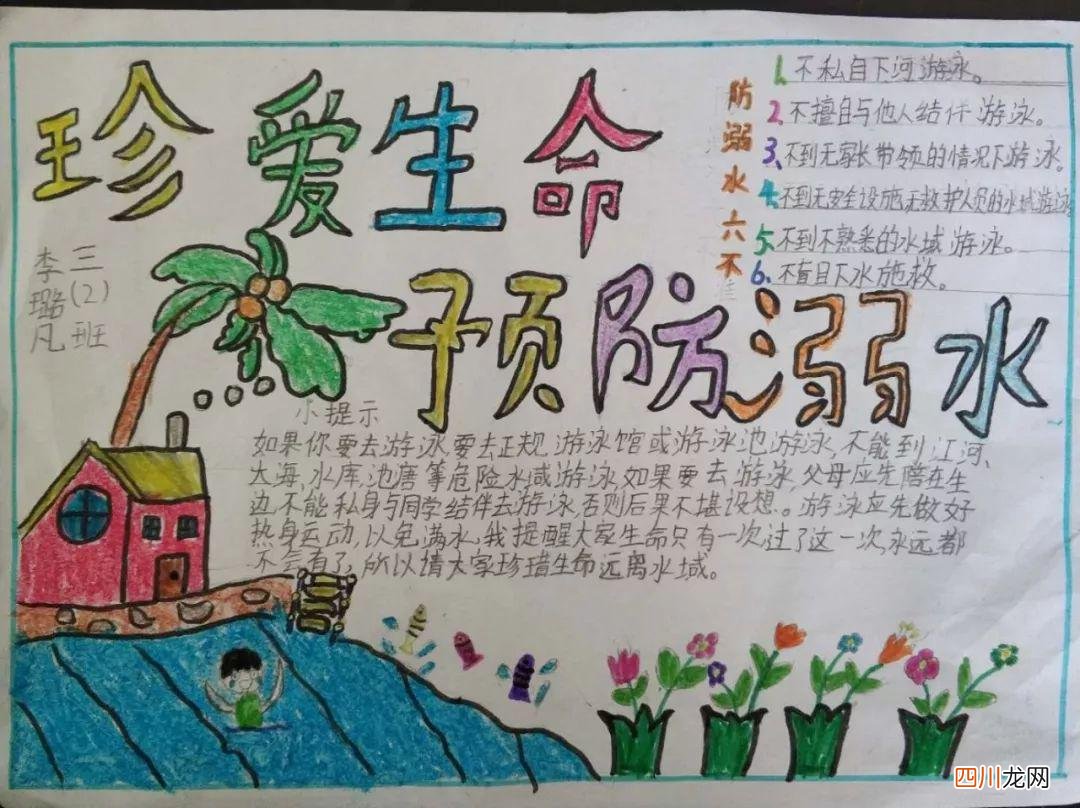 珍爱生命
预防溺水
三(2)班
李璐凡
防溺水六不
1.不私自下河游泳。
2.不擅自与他人结伴游泳。
3.不到无家长带领的情况下游泳。
4.不到无安全设施,无救护人员的水域游泳
5.不到不熟悉的水域游泳。
6.不盲目下水施救。
小提示
如果你要去游泳,要去正规游泳馆或游泳池游泳,不能到江河、
大海,水库,池唐等危险水域游泳,如果要去游泳,父母应先陪在生
边,不能私身与同学结伴去游泳,否则后果不堪设想。游泳应先做好
热身运动,以免满水,我提醒大家生命只有一次过了这一次,永远都
不会有了,所以请大家珍惜生命远离水域。
四川龙网